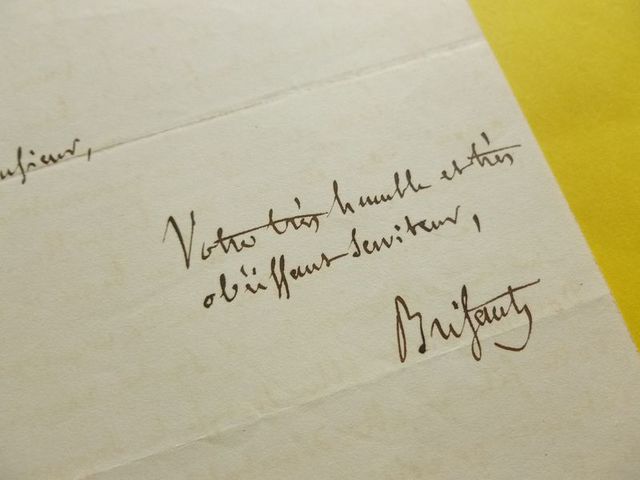 Votre très humble et très
obéissant serviteur,
Brifaut